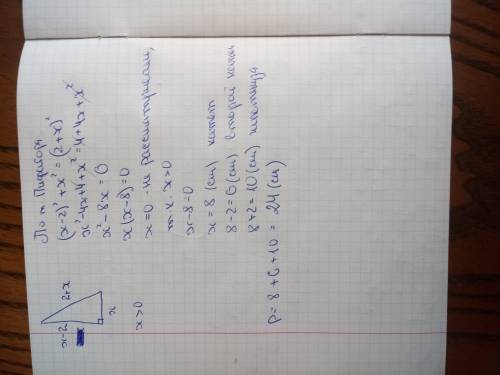 x-2
2+x
x
x>0
По т. Пифагора
(x-2)² + x² = (2+x)²
x² - 4x + 4 + x² = 4 + 4x + x²
x² - 8x = 0
x(x-8) = 0
x = 0 - не рассматриваем,
т.к. x>0
x-8=0
x = 8 (см) катет
8-2=6 (см) второй катет
8+2=10 (см) гипотенуза
P = 8 + 6 + 10 = 24 (см)